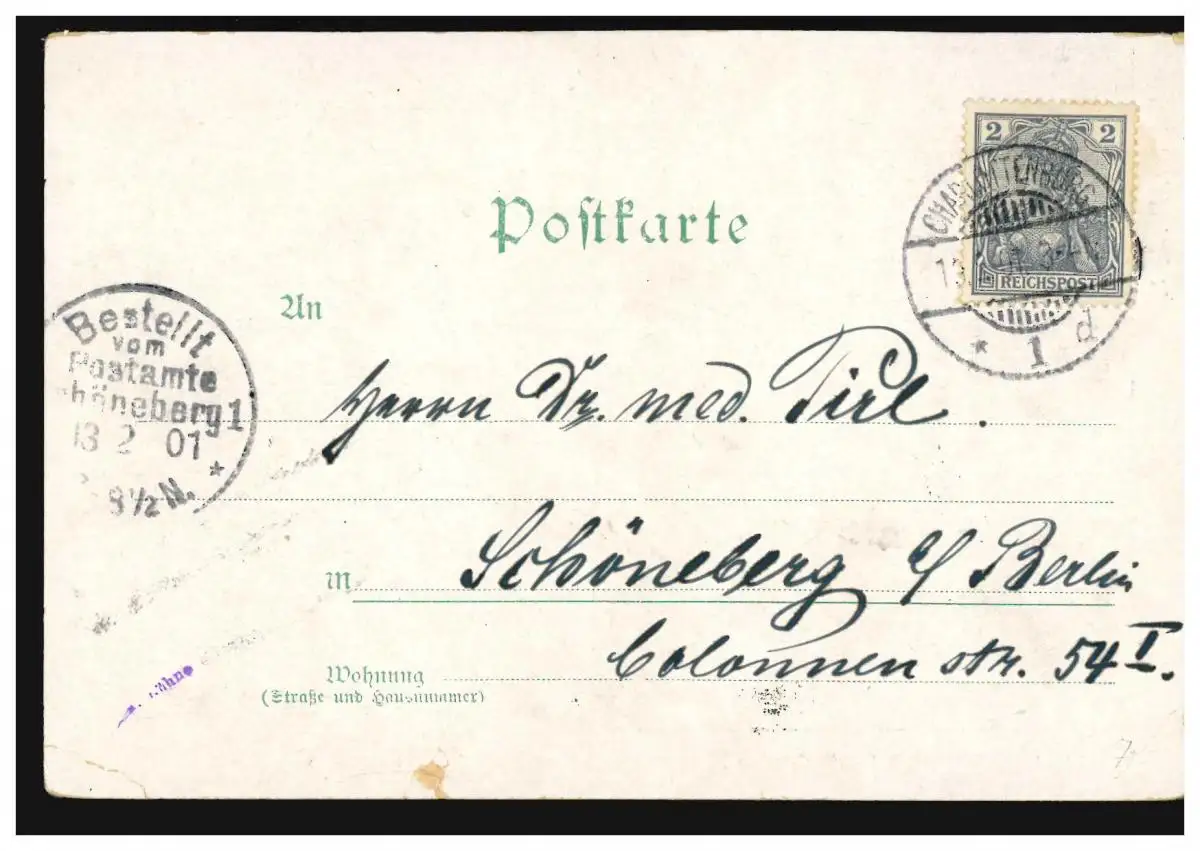 Postkarte
2 2
REICHSPOST
CHARLOTTENBURG
* 1 d
An
Bestellt
vom
Postamte
Schöneberg 1
13 2 01
8½ N. *
Herrn Dr. med. Pirl.
M
Schöneberg b/ Berlin
Colonnen str. 54 I.
Wohnung
(Straße und Hausnummer)